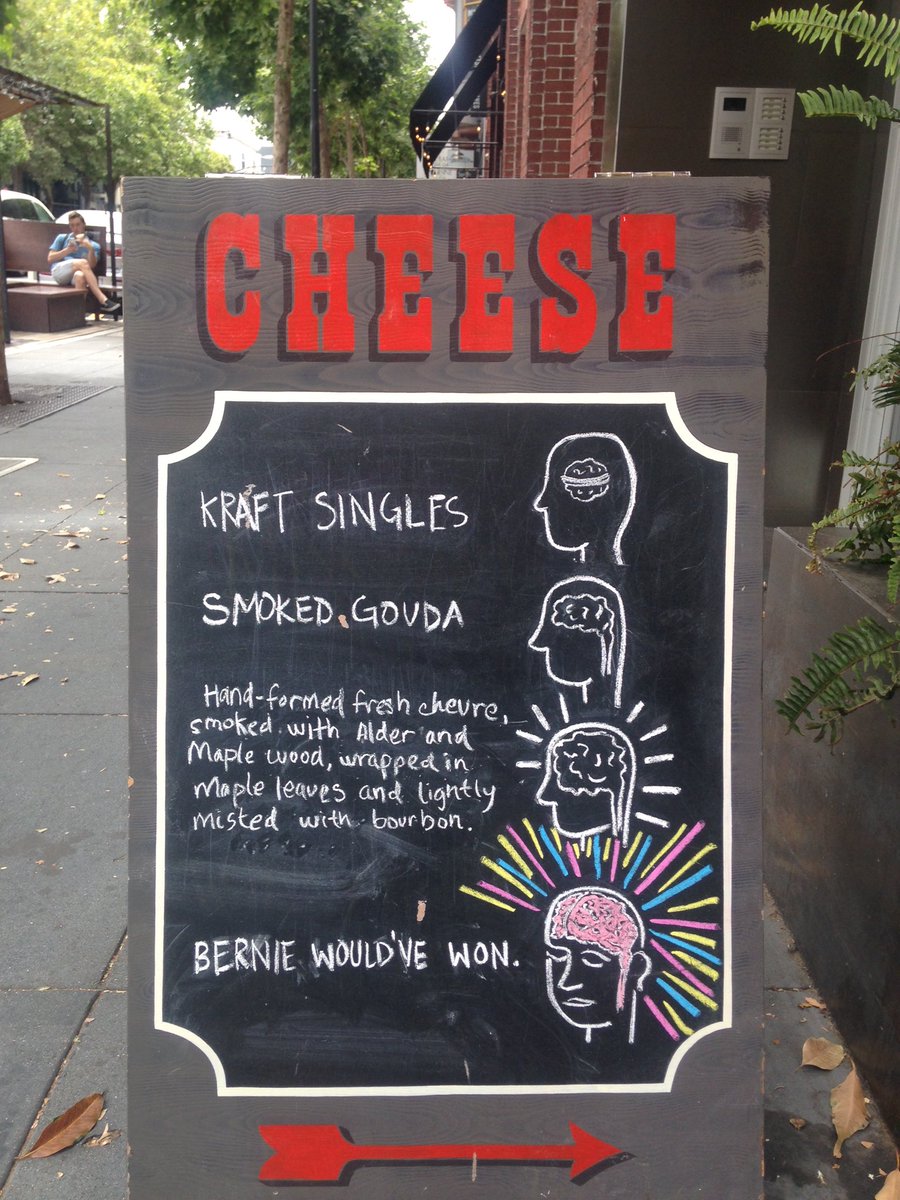 CHEESE
KRAFT SINGLES
SMOKED GOUDA
Hand-formed fresh chevre,
smoked with Alder and
Maple wood, wrapped in
Maple leaves and lightly
misted with bourbon.
BERNIE WOULD'VE WON.